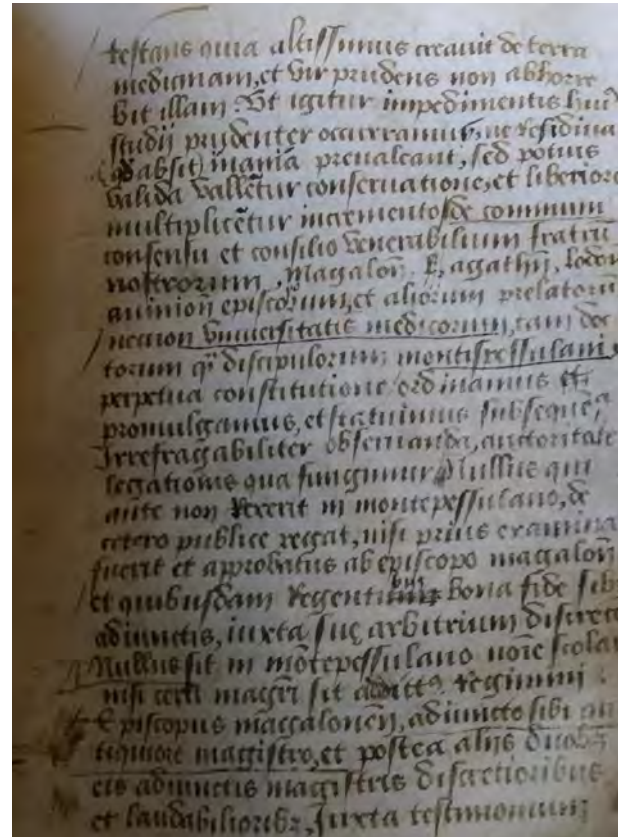 testans quia altissimus creavit de terra
medicinam, et vir prudens non abhorre
bit illam. Ut igitur impedimentis huiꝰ
studii prudenter occurramus, ne residiua
absit) mania prevaleant, sed potius
valida valletur conservatione, et liberiore
multiplicētur incremento, de communi
consensu et consilio venerabilium fratrū
nostrorum, Magaloñ. E, agathñ, lodov
avinioñ episcorum, et aliorum prelatorū
necnon universitatis medicorum, tam doc
torum q̄ discipulorum montispessulani
perpetua constitutione ordinamus et
promulgamus, et statuimus subsequēa
Irrefragabiliter observanda, auctoritate
legationis qua fungimur Nullus qui
ante non Rexerit in montepessulano, de
cetero publice regat, nisi prius examina
fuerit et approbatus ab episcopo magaloñ
et quibusdam Regentibus bona fide sib
adiunctis, iuxta suę arbitrium discrete
Nullus sit in mōtepessulano noīe scolar
nisi certi magr̄i sit addictꝰ regimini
Episcopus magalonēñ, adiuncto sibi an
tiquiore magistro, et postea alijs duobꝫ
eis adiunctis magistris discretioribus
et laudabilioribꝫ, Juxta testimonium